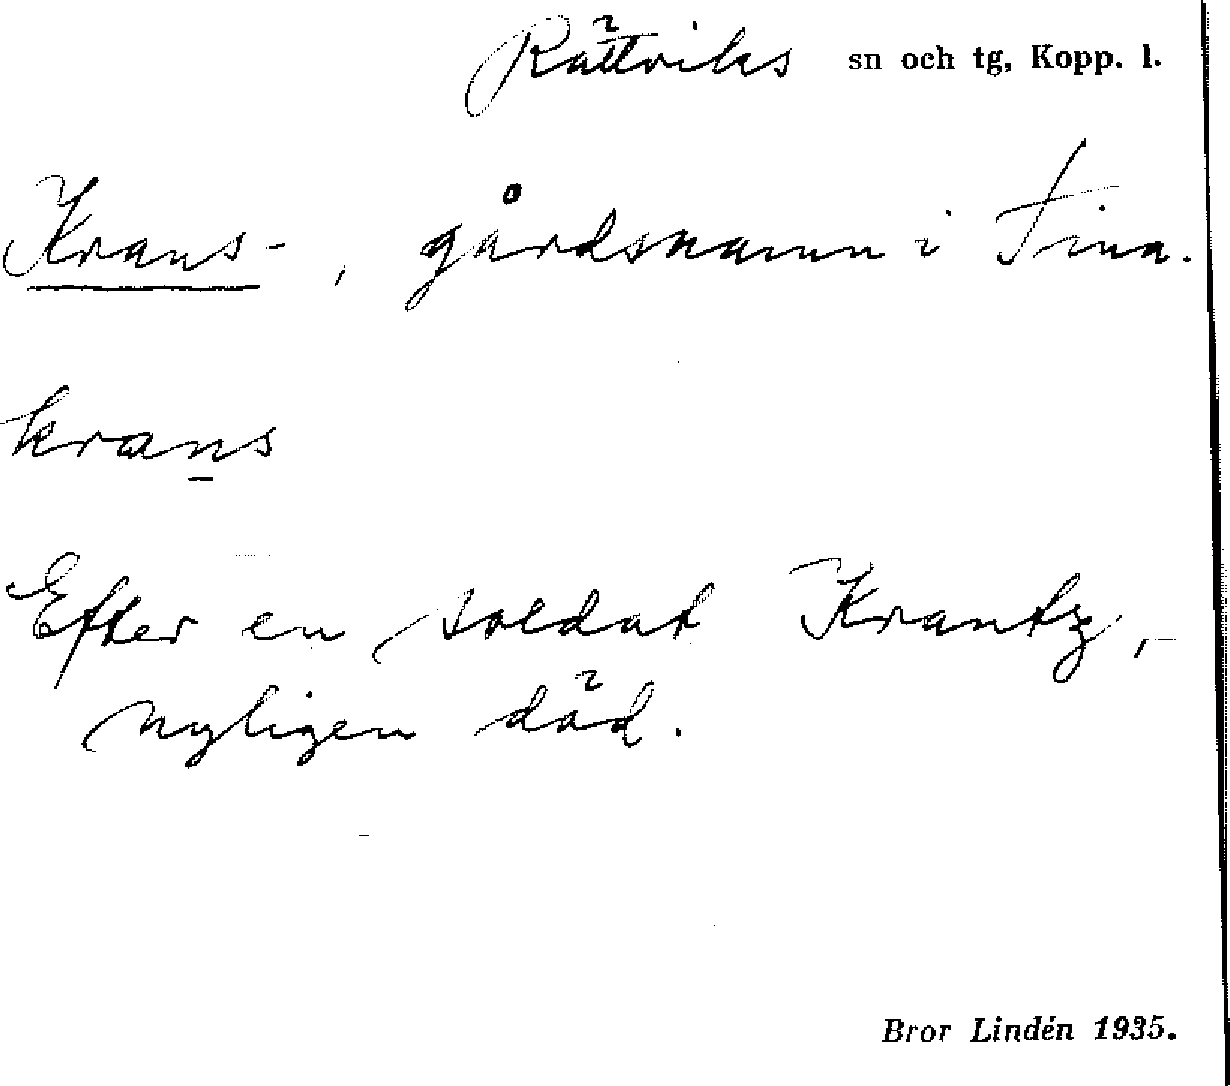 Rättviks sn och tg, Kopp. l.
Krans-, gårdsnamn i Tina.
krans
Efter en soldat Krantz,
nyligen död.
Bror Lindén 1935.